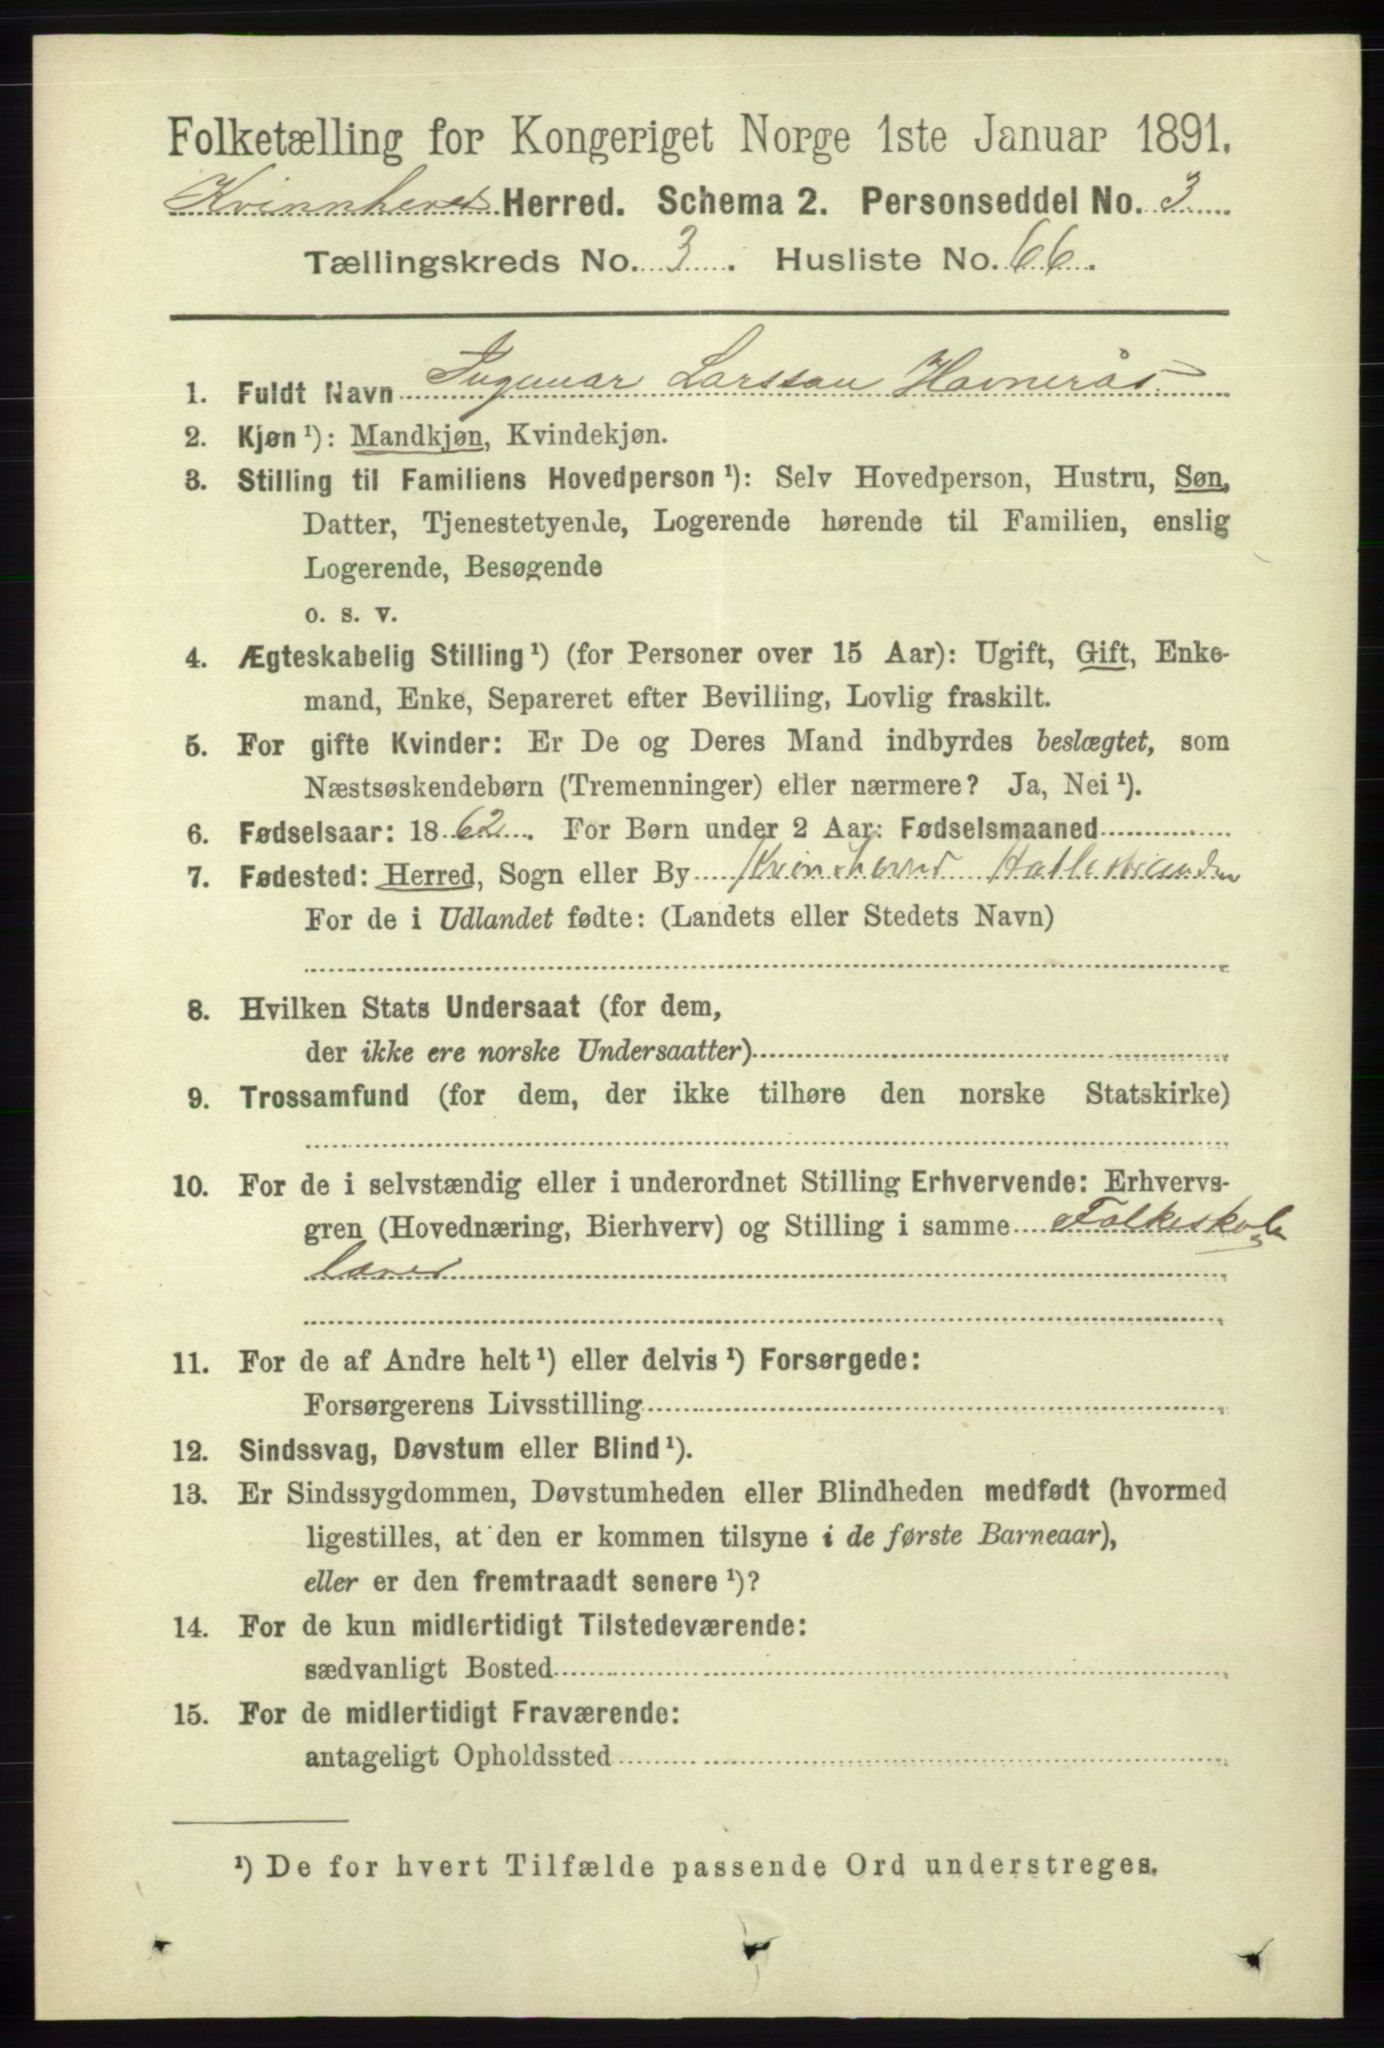 Folketælling for Kongeriget Norge 1ste Januar 1891.
Kvinnhered Herred. Schema 2. Personseddel No. 3
Tællingskreds No. 3. Husliste No. 66.
1. Fuldt Navn Ingemar Larssen Havnerås
2. Kjøn ¹): Mandkjøn, Kvindekjøn.
3. Stilling til Familiens Hovedperson ¹): Selv Hovedperson, Hustru, Søn,
Datter, Tjenestetyende, Logerende hørende til Familien, enslig
Logerende, Besøgende
o. s. v.
4. Ægteskabelig Stilling ¹) (for Personer over 15 Aar): Ugift, Gift, Enke-
mand, Enke, Separeret efter Bevilling, Lovlig fraskilt.
5. For gifte Kvinder: Er De og Deres Mand indbyrdes beslægtet, som
Næstsøskendebørn (Tremenninger) eller nærmere? Ja, Nei ¹).
6. Fødselsaar: 1862. For Børn under 2 Aar: Fødselsmaaned
7. Fødested: Herred, Sogn eller By
For de i Udlandet fødte: (Landets eller Stedets Navn)
8. Hvilken Stats Undersaat (for dem,
der ikke ere norske Undersaatter)
9. Trossamfund (for dem, der ikke tilhøre den norske Statskirke)
10. For de i selvstændig eller i underordnet Stilling Erhvervende: Erhvervs-
gren (Hovednæring, Bierhverv) og Stilling i samme Folkeskole
lærer
11. For de af Andre helt ¹) eller delvis ¹) Forsørgede:
Forsørgerens Livsstilling
12. Sindssvag, Døvstum eller Blind ¹).
13. Er Sindssygdommen, Døvstumheden eller Blindheden medfødt (hvormed
ligestilles, at den er kommen tilsyne i de første Barneaar),
eller er den fremtraadt senere ¹)?
14. For de kun midlertidigt Tilstedeværende:
sædvanligt Bosted
15. For de midlertidigt Fraværende:
antageligt Opholdssted
¹) De for hvert Tilfælde passende Ord understreges.